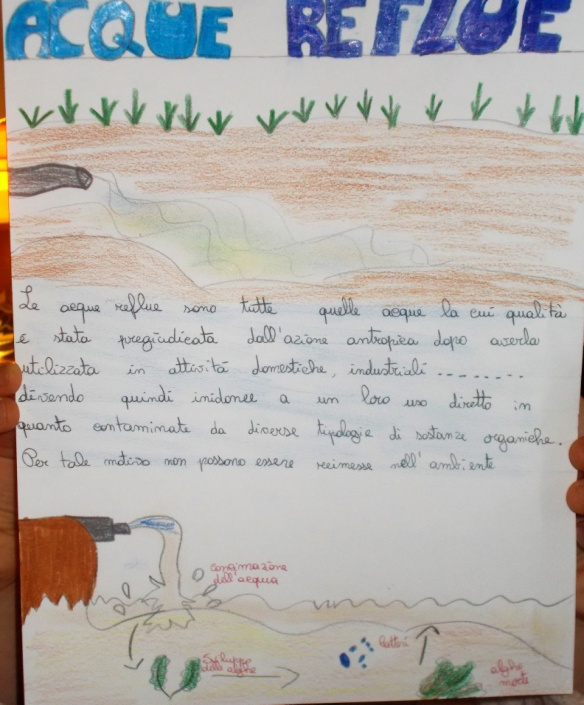 ACQUE REFLUE
Le acque reflue sono tutte quelle acque la cui qualità
è stata pregiudicata dall'azione antropica dopo averla
utilizzata in attività domestiche, industriali ........
divendo quindi inidonee a un loro uso diretto in
quanto contaminate da diverse tipologie di sostanze organiche.
Per tale motivo non possono essere reimesse nell'ambiente
dell'acqua
Sviluppo
delle alghe
batteri
alghe
morte